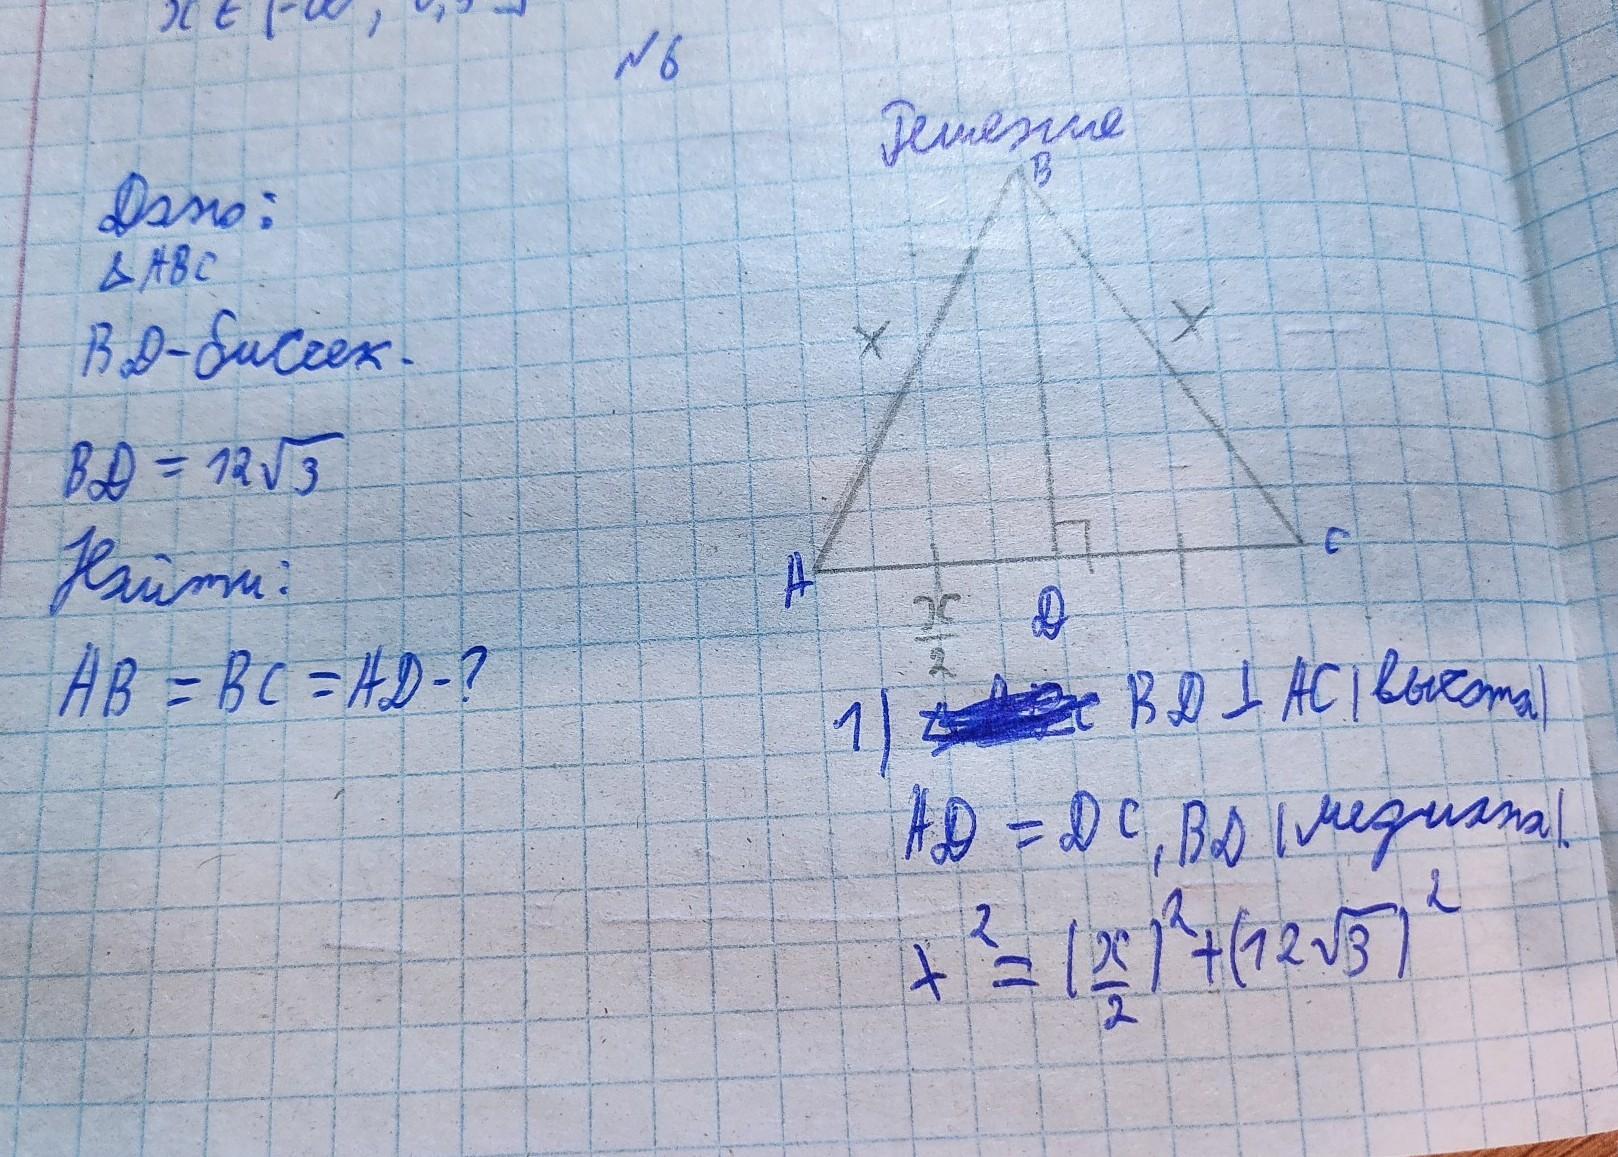 №6
Решение
Дано:
△ABC
BD-биссек.
BD = 12√3
Найти:
AB = BC = AD-?
B
x
x
A
C
x/2
D
1) BD ⊥ AC (высота)
AD = DC, BD (медиана).
x² = (x/2)² + (12√3)²